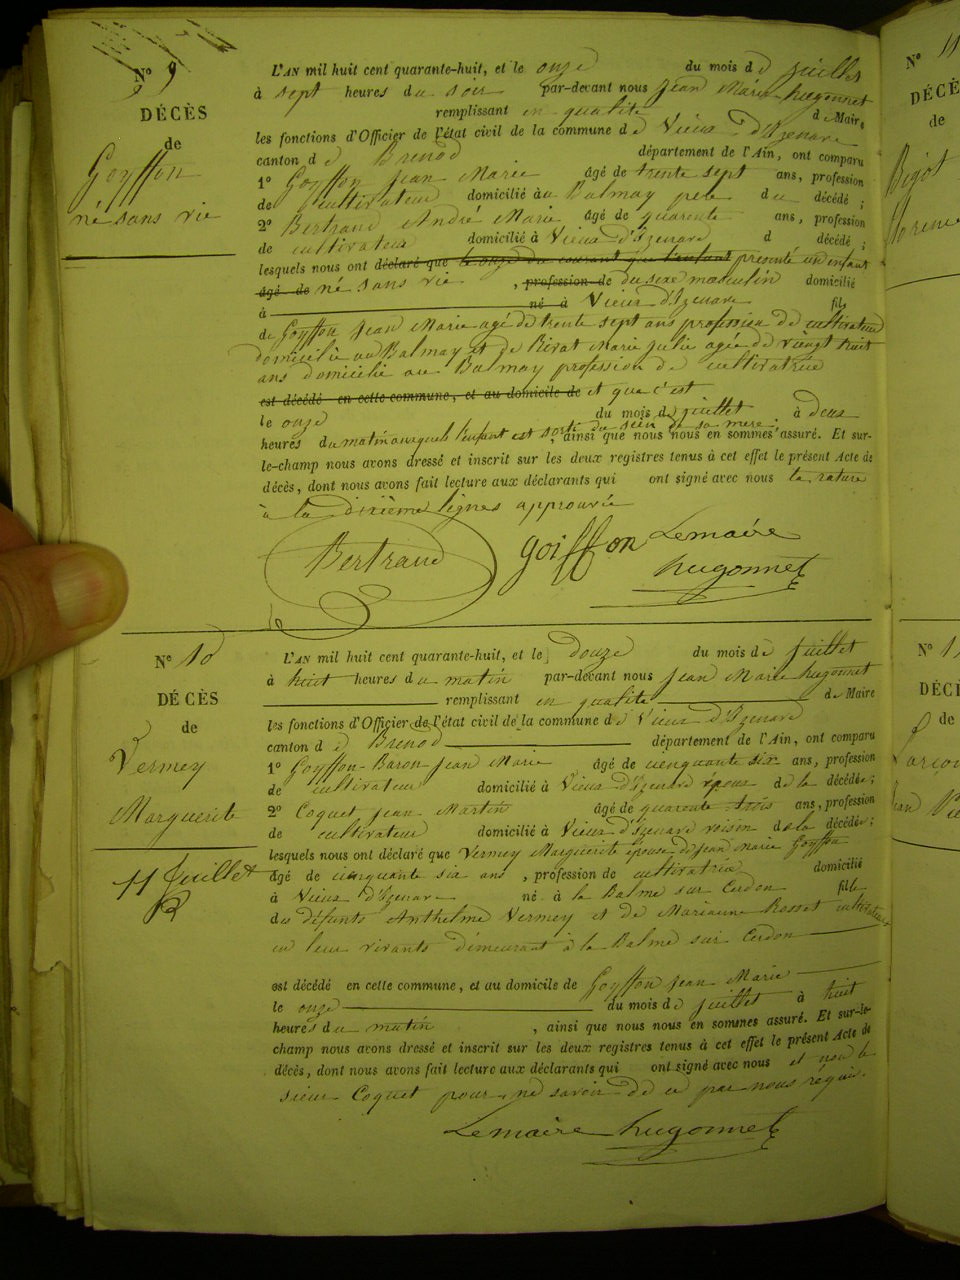 N° 9
DÉCÈS
de
Goyffon
né sans vie
L'AN mil huit cent quarante-huit, et le onze du mois de juillet
à sept heures du soir par-devant nous Jean Marie hugonnet
remplissant en qualité de Maire
les fonctions d'Officier de l'état civil de la commune de Vieux d'Izenave
canton de Brenod département de l'Ain, ont comparu
1° Goyffon Jean Marie âgé de trente sept ans, profession
de cultivateur domicilié au Balmay père du décédé ;
2° Bertrand André Marie âgé de quarante ans, profession
de cultivateur domicilié à Vieux d'Izenave d décédé ;
lesquels nous ont déclaré que le onze du courant que l'enfant présenté un enfant
âgé de né sans vie , profession de du sexe masculin domicilié
à né à Vieux d'Izenave fils
de Goyffon Jean Marie agé de trente sept ans profession de cultivateur
domicilié au Balmay et de Rivat Marie julie agée de vingt huit
ans domicilié au Balmay profession de cultivatrice
est décédé en cette commune, et au domicile de et que c'est
le onze du mois de juillet à deux
heures du matin auquels l'enfant est sorti du sein de sa mère , ainsi que nous nous en sommes assuré. Et sur-
le-champ nous avons dressé et inscrit sur les deux registres tenus à cet effet le présent Acte de
décès, dont nous avons fait lecture aux déclarants qui ont signé avec nous la rature
à la dixième lignes approuvée
Bertrand goiffon Lemaire
hugonnet
N° 10
DÉCÈS
de
Vermey
Marguerite
11 Juillet
L'AN mil huit cent quarante-huit, et le douze du mois de juillet
à huit heures du matin par-devant nous Jean Marie hugonnet
remplissant en qualité de Maire
les fonctions d'Officier de l'état civil de la commune de Vieux d'Izenave
canton de Brenod département de l'Ain, ont comparu
1° Goyffon-Baron Jean Marie âgé de cinquante six ans, profession
de cultivateur domicilié à Vieux d'Izenave époux de la décédée ;
2° Coquet Jean Martin âgé de quarante trois ans, profession
de cultivateur domicilié à Vieux d'Izenave voisin de la décédée ;
lesquels nous ont déclaré que Vermey Marguerite épouse de Jean Marie Goyffon
âgé de cinquante six ans , profession de cultivatrice domicilié
à Vieux d'Izenave né à la Balme sur Cerdon fille
des défunts Anthelme Vermey et de Marianne Rosset cultivateurs
en leur vivants demeurant à la Balme sur Cerdon
est décédé en cette commune, et au domicile de Goyffon Jean Marie
le onze du mois de juillet à huit
heures du matin , ainsi que nous nous en sommes assuré. Et sur-le-
champ nous avons dressé et inscrit sur les deux registres tenus à cet effet le présent Acte de
décès, dont nous avons fait lecture aux déclarants qui ont signé avec nous et non le
sieur Coquet pour ne savoir de ce par nous réquis.
Lemaire hugonnet
N° 11
DÉCÈ
de
Bigot
N° 1
DÉCÈ
de